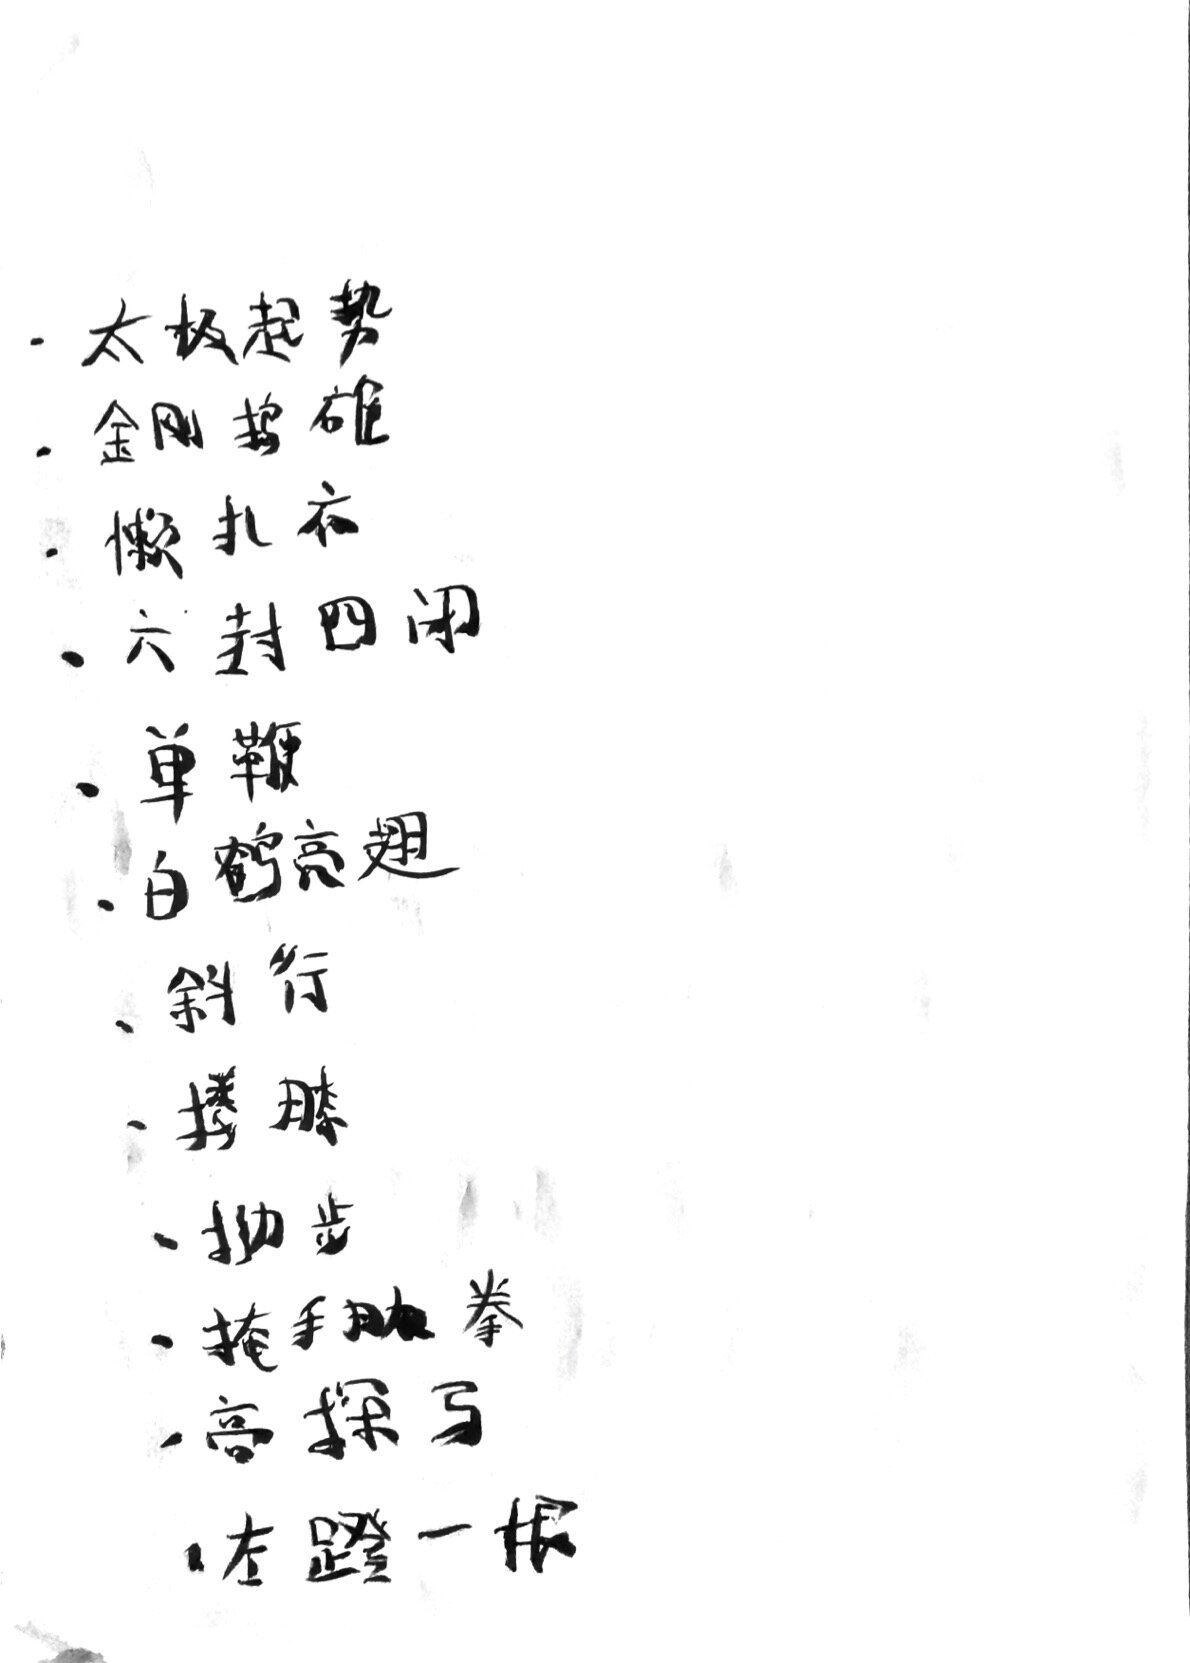 · 太极起势
· 金刚捣碓
· 懒扎衣
· 六封四闭
· 单鞭
· 白鹤亮翅
· 斜行
· 搂膝
· 拗步
· 掩手肱拳
· 高探马
· 左蹬一根